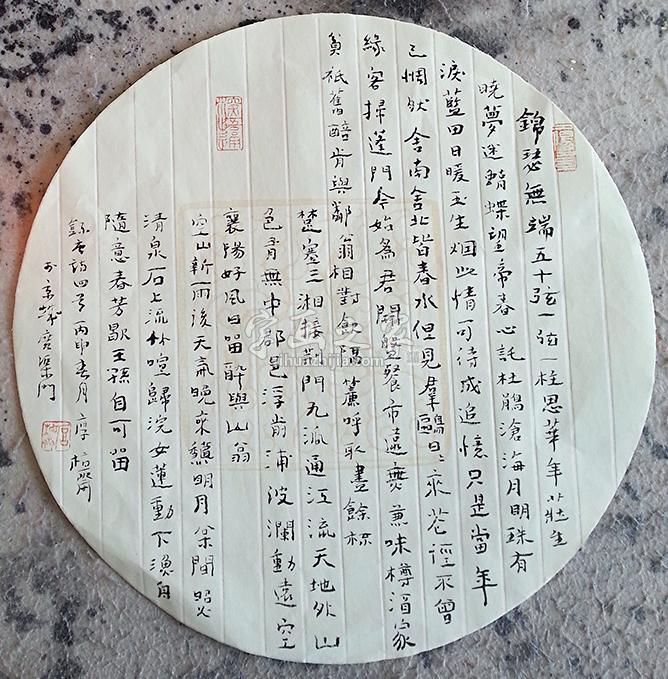 錦瑟無端五十弦一弦一柱思華年莊生
曉夢迷蝴蝶望帝春心託杜鵑滄海月明珠有
淚藍田日暖玉生烟此情可待成追憶只是當年
已惘然舍南舍北皆春水但見羣鷗日〻來花徑不曾
緣客掃蓬門今始為君開盤餐市遠無兼味樽酒家
貧祇舊醅肯與鄰翁相對飲隔籬呼取盡餘杯
楚塞三湘接荊門九派通江流天地外山
色有無中郡邑浮前浦波瀾動遠空
襄陽好風日留醉與山翁
空山新雨後天氣晚來秋明月松間照
清泉石上流竹喧歸浣女蓮動下漁舟
隨意春芳歇王孫自可留
錄唐詩四首丙申春月
於京城
字画之家
zihuazhijia.com